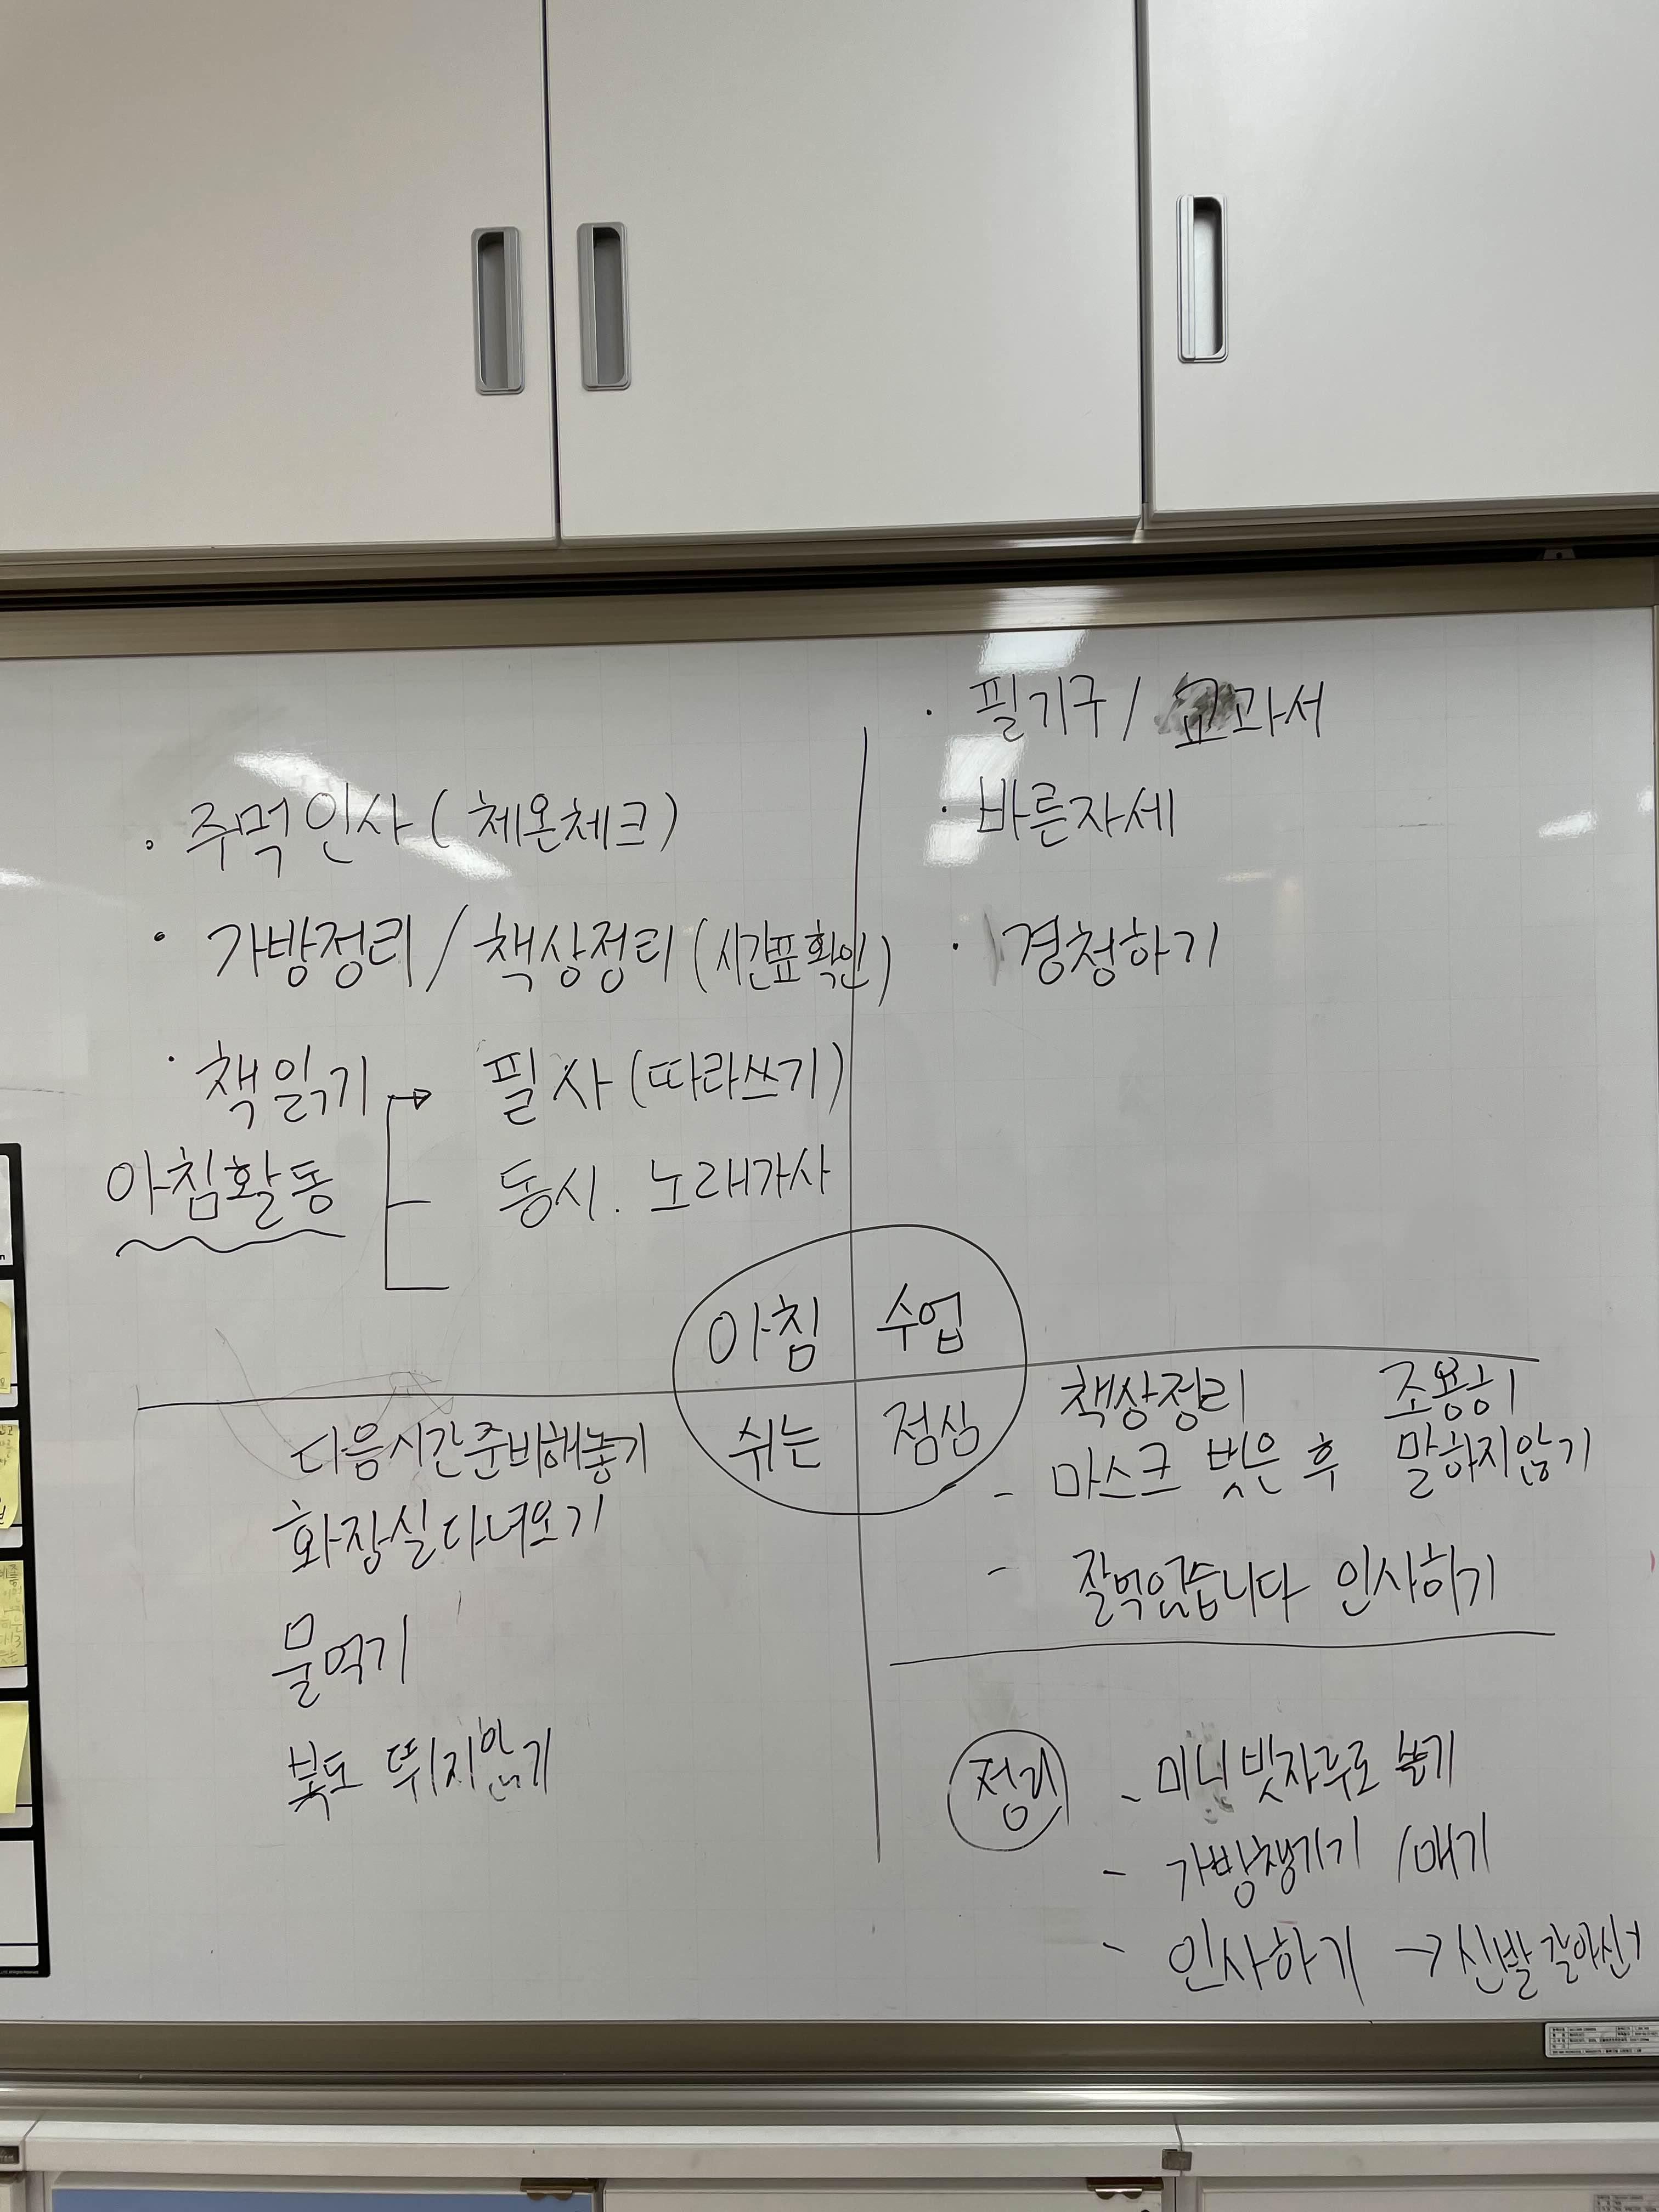 · 주먹인사 (체온체크)
· 가방정리 / 책상정리 (시간표확인)
· 책읽기 → 필사 (따라쓰기)
아침활동
동시. 노래가사
· 필기구 / 교과서
· 바른자세
· 경청하기
아침 수업
쉬는 점심
다음시간준비해놓기
화장실다녀오기
물먹기
복도 뛰지않기
책상정리 조용히
- 마스크 벗은 후 말하지않기
- 잘먹었습니다 인사하기
정리
- 미니빗자루로 쓸기
- 가방챙기기 / 매기
- 인사하기 → 신발 갈아신기